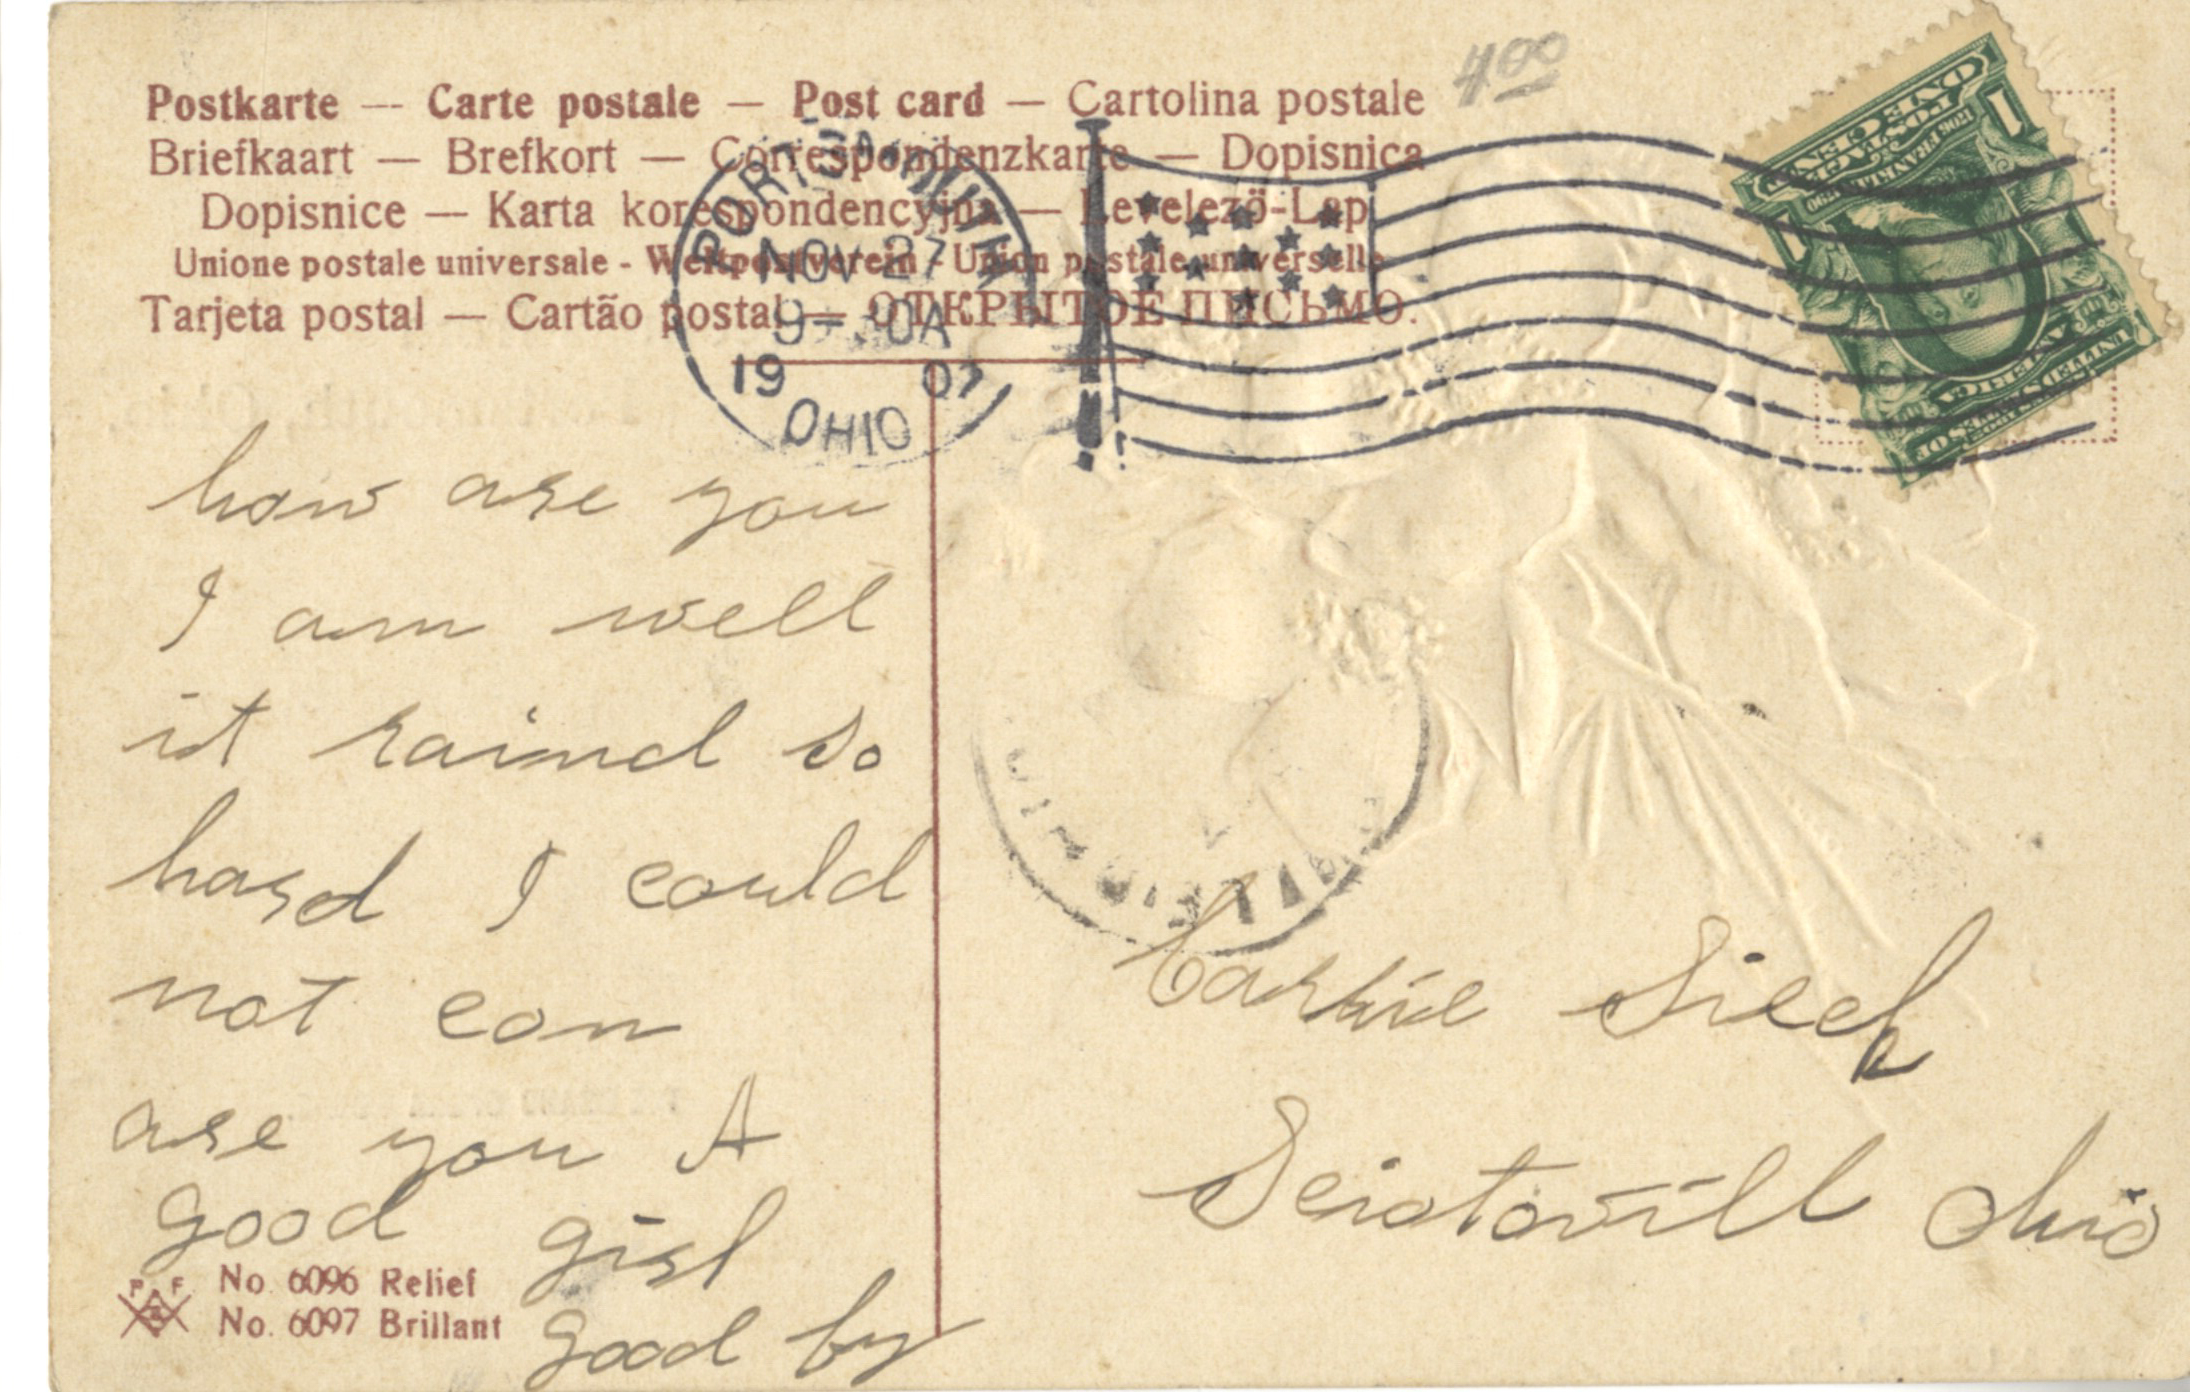 4.00
Postkarte — Carte postale — Post card — Cartolina postale
Briefkaart — Brefkort — Correspondenzkarte — Dopisnica
Dopisnice — Karta korespondencyjna — Levelező-Lap
Unione postale universale - Weltpostverein - Union postale universelle
Tarjeta postal — Cartão postal — ОТКРЫТОЕ ПИСЬМО.
NOV 27
19 07
OHIO
ONE CENT 1
POSTAGE
FRANKLIN
UNITED STATES OF
AMERICA
how are you
I am well
it raind so
hard I could
not com
are you A
good girl
good by
Carrie
Sciotovill Ohio
P F B
No. 6096 Relief
No. 6097 Brillant